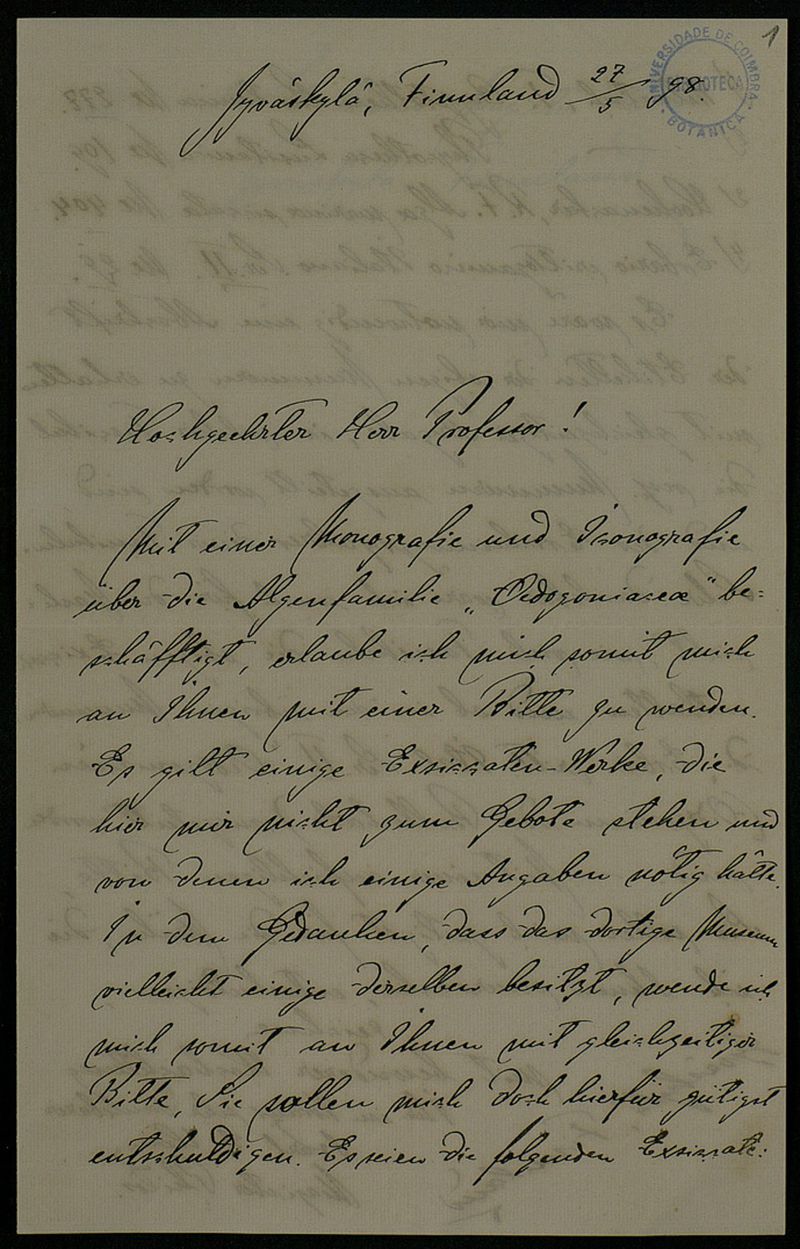 1
UNIVERSIDADE DE COIMBRA
BIBLIOTECA
BOTANICA
Jyväskylä, Finnland 27/5 98.
Hochgeehrter Herr Professor!
Mit einer Monografie und Iconografie
über die Algenfamilie „Oedogoniaceæ" be=
schäfftigt, erlaube ich mich somit mich
an Ihnen mit einer Bitte zu wenden.
Es gilt einige Exsiccaten-Werke, die
hier mir nicht zum Gebote stehen und
von denen ich einige Angaben nötig hätte.
In dem Gedanken, dass das dortige Museum
vielleicht einige derselben besitzt, wende ich
mich somit an Ihnen mit gleichzeitiger
Bitte, Sie wollen mich doch hierfür gütigst
entschuldigen. Es seien die folgenden Exsiccate: